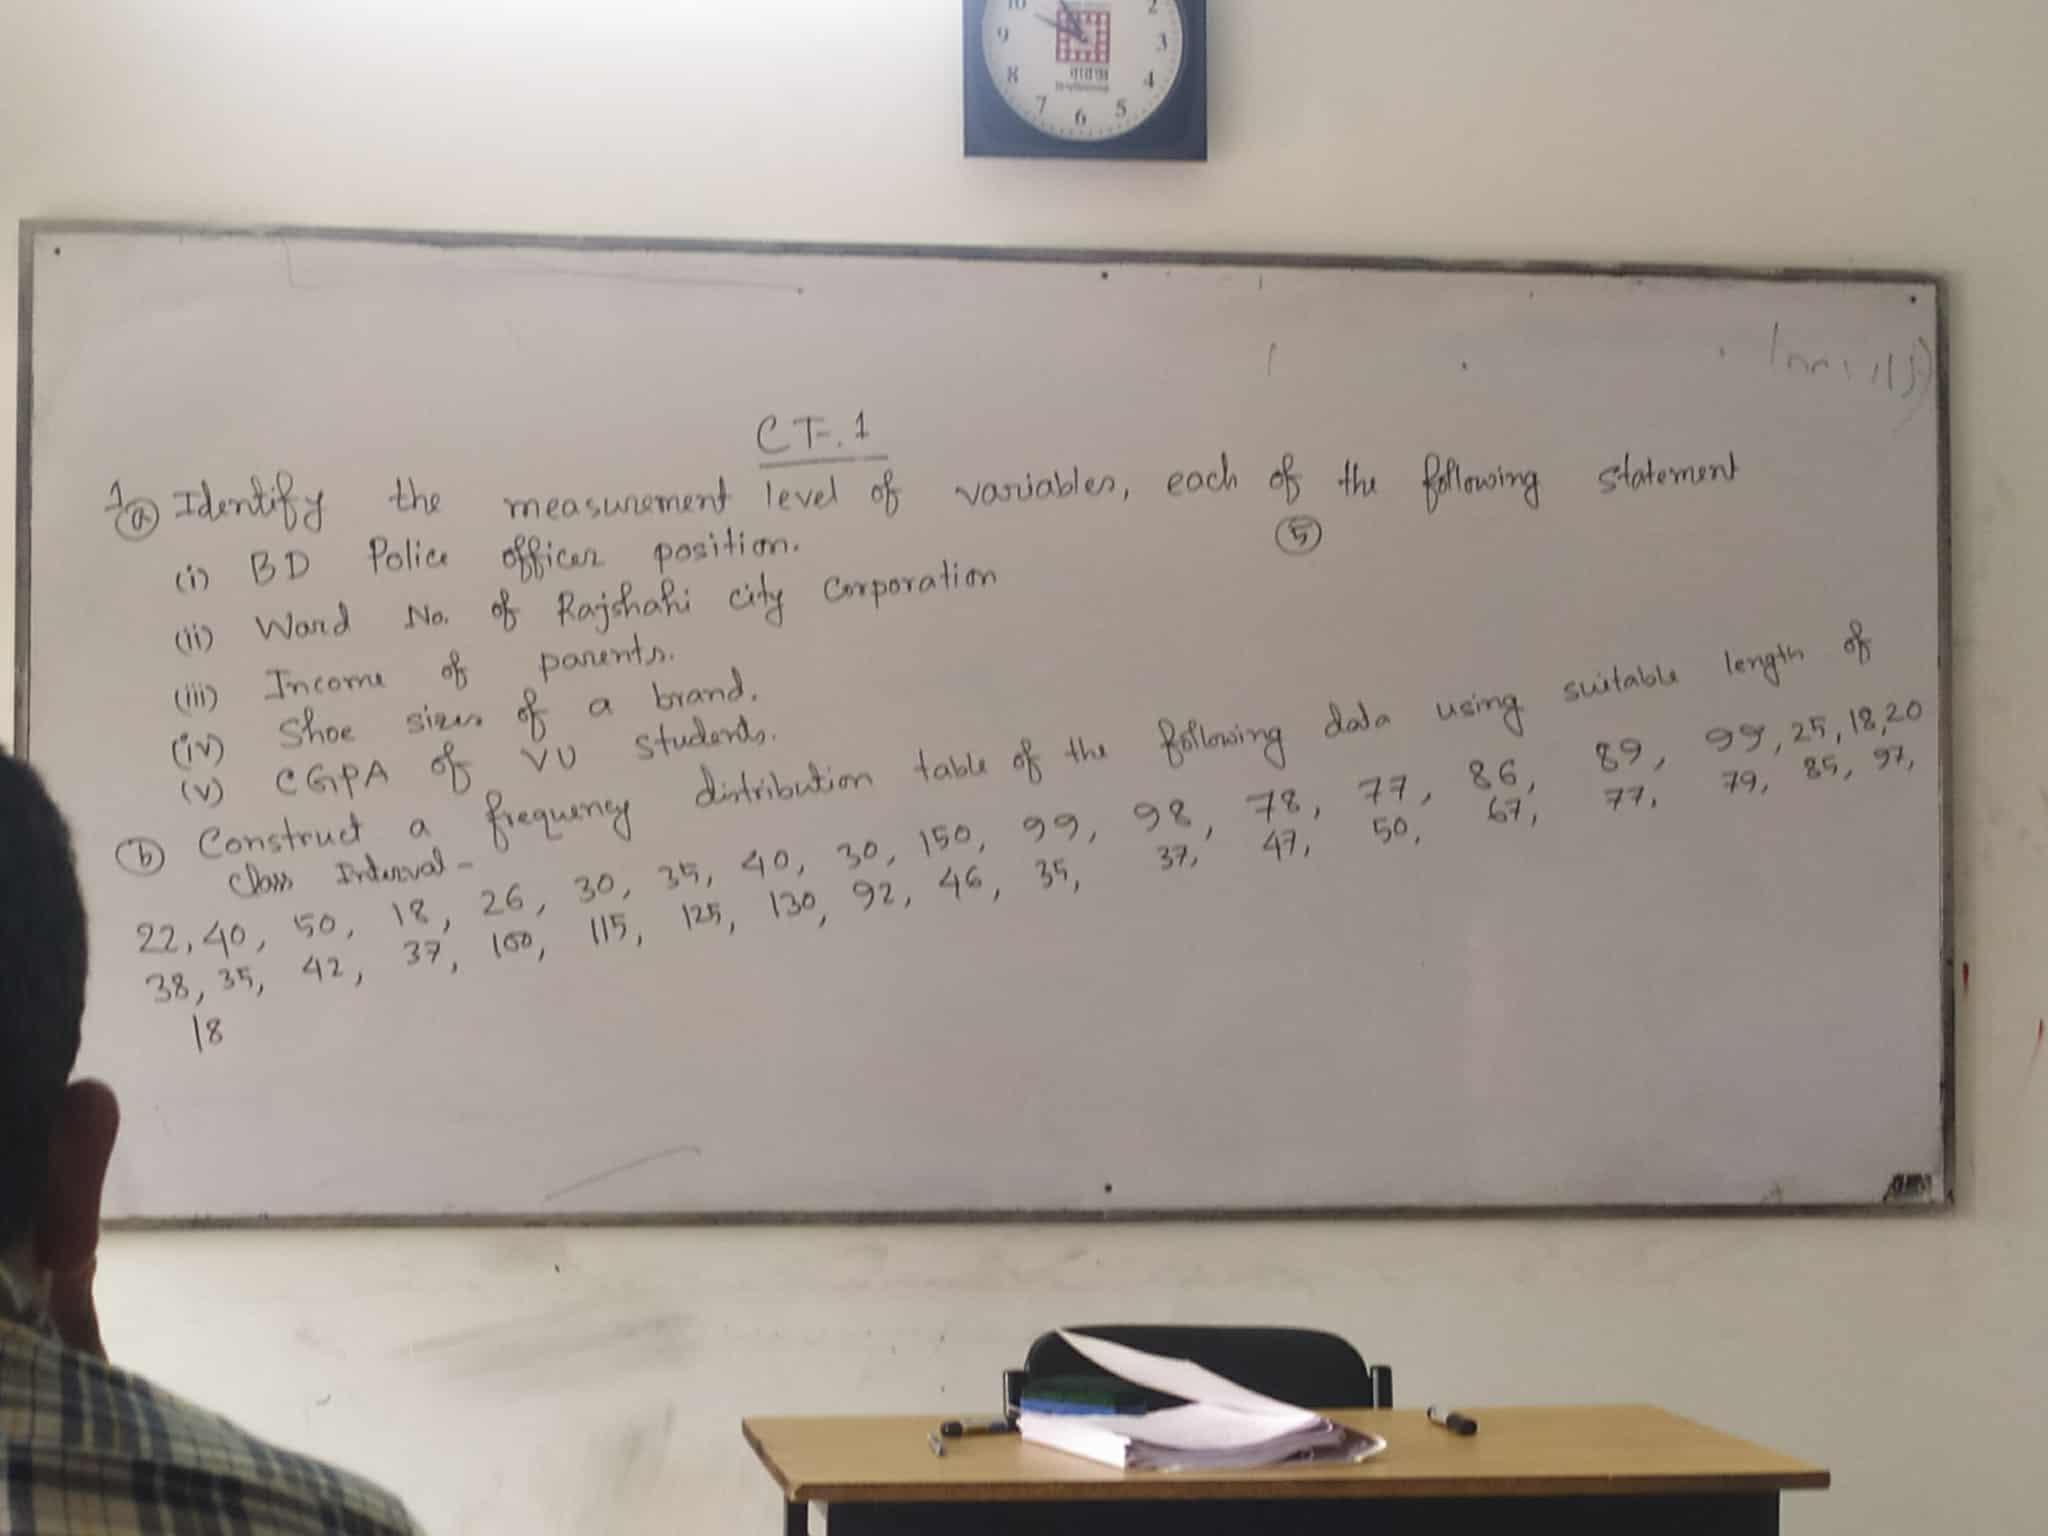 10
2
9
3
8
4
7
5
6
CT-1
1 (a) Identify the measurement level of variables, each of the following statement
(5)
(i) BD Police officer position.
(ii) Ward No. of Rajshahi city Corporation
(iii) Income of parents.
(iv) Shoe sizes of a brand.
(v) CGPA of VU students.
(b) Construct a frequency distribution table of the following data using suitable length of
class Interval -
22, 40, 50, 18, 26, 30, 35, 40, 30, 150, 99, 98, 78, 77, 86, 89, 99, 25, 18, 20
38, 35, 42, 37, 100, 115, 125, 130, 92, 46, 35, 37, 47, 50, 67, 77, 79, 85, 97,
18